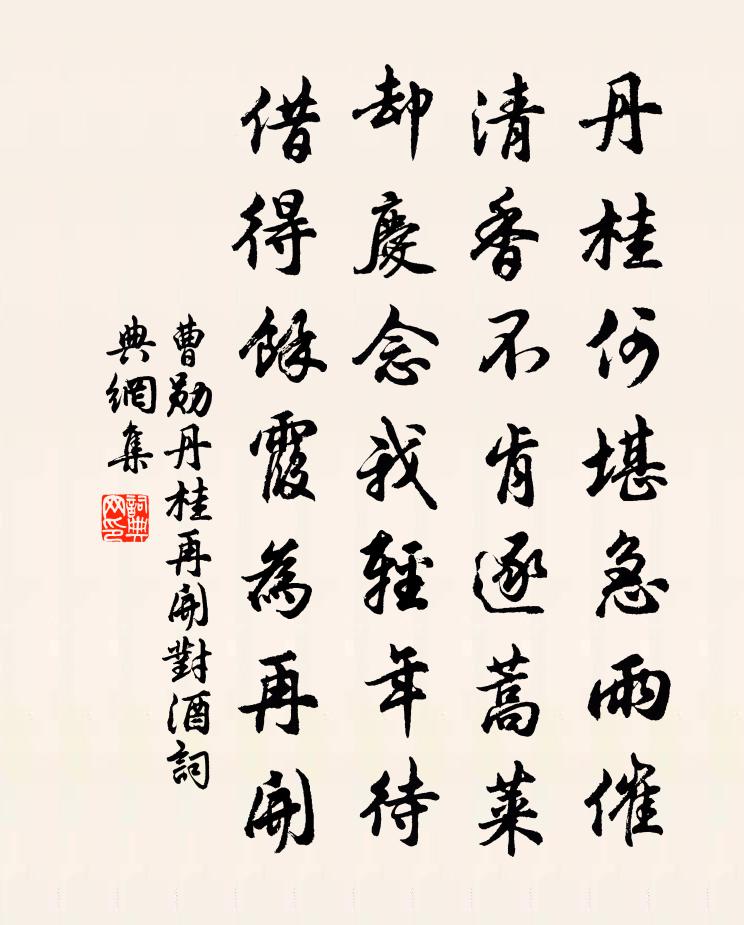 丹桂何堪急雨催
清香不肯逐蒿萊
却慶念我輕年待
借得餘霞為再開
曹勛丹桂再開對酒詞
典網集
詞典
网印